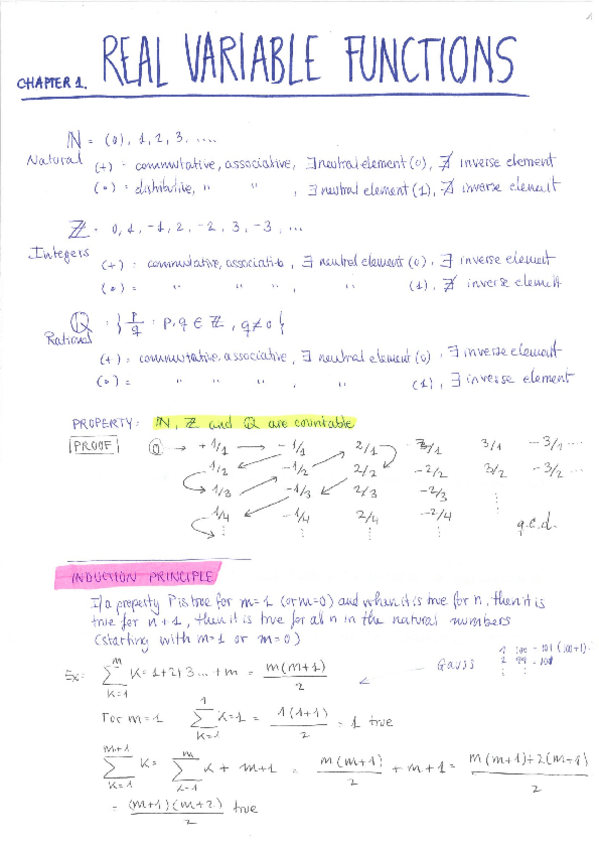 CHAPTER 1. REAL VARIABLE FUNCTIONS
ℕ = (0), 1, 2, 3, ....
Natural (+) = commutative, associative, ∃ neutral element (0), ∄ inverse element
(•) = distributive, " " , ∃ neutral element (1), ∄ inverse element
ℤ = 0, 1, -1, 2, -2, 3, -3, ...
Integers (+) = commutative, associative, ∃ neutral element (0), ∃ inverse element
(•) = " " " " (1), ∄ inverse element
ℚ = { p/q : p, q ∈ ℤ, q≠0 }
Rational (+) = commutative, associative, ∃ neutral element (0), ∃ inverse element
(•) = " " " , " (1), ∃ inverse element
PROPERTY: ℕ, ℤ and ℚ are countable
PROOF 0 → +1/1 → -1/1 2/1 3/1 -3/1 ...
1/2 -1/2 2/2 -2/2 3/2 -3/2 ...
1/3 -1/3 2/3 -2/3 ⋮
1/4 -1/4 2/4 -2/4 q.e.d.
INDUCTION PRINCIPLE
If a property P is true for n=1 (or n=0) and when it is true for n, then it is
true for n+1, then it is true for all n in the natural numbers
(starting with n=1 or n=0)
Ex: ∑_{k=1}^{n} k = 1+2+3...+n = n(n+1)/2 ← Gauss
For n=1 ∑_{k=1}^{1} k=1 = 1(1+1)/2 = 1 true
∑_{k=1}^{n+1} k = ∑_{k=1}^{n} k + n+1 = n(n+1)/2 + n+1 = n(n+1)+2(n+1)/2
= (n+1)(n+2)/2 true